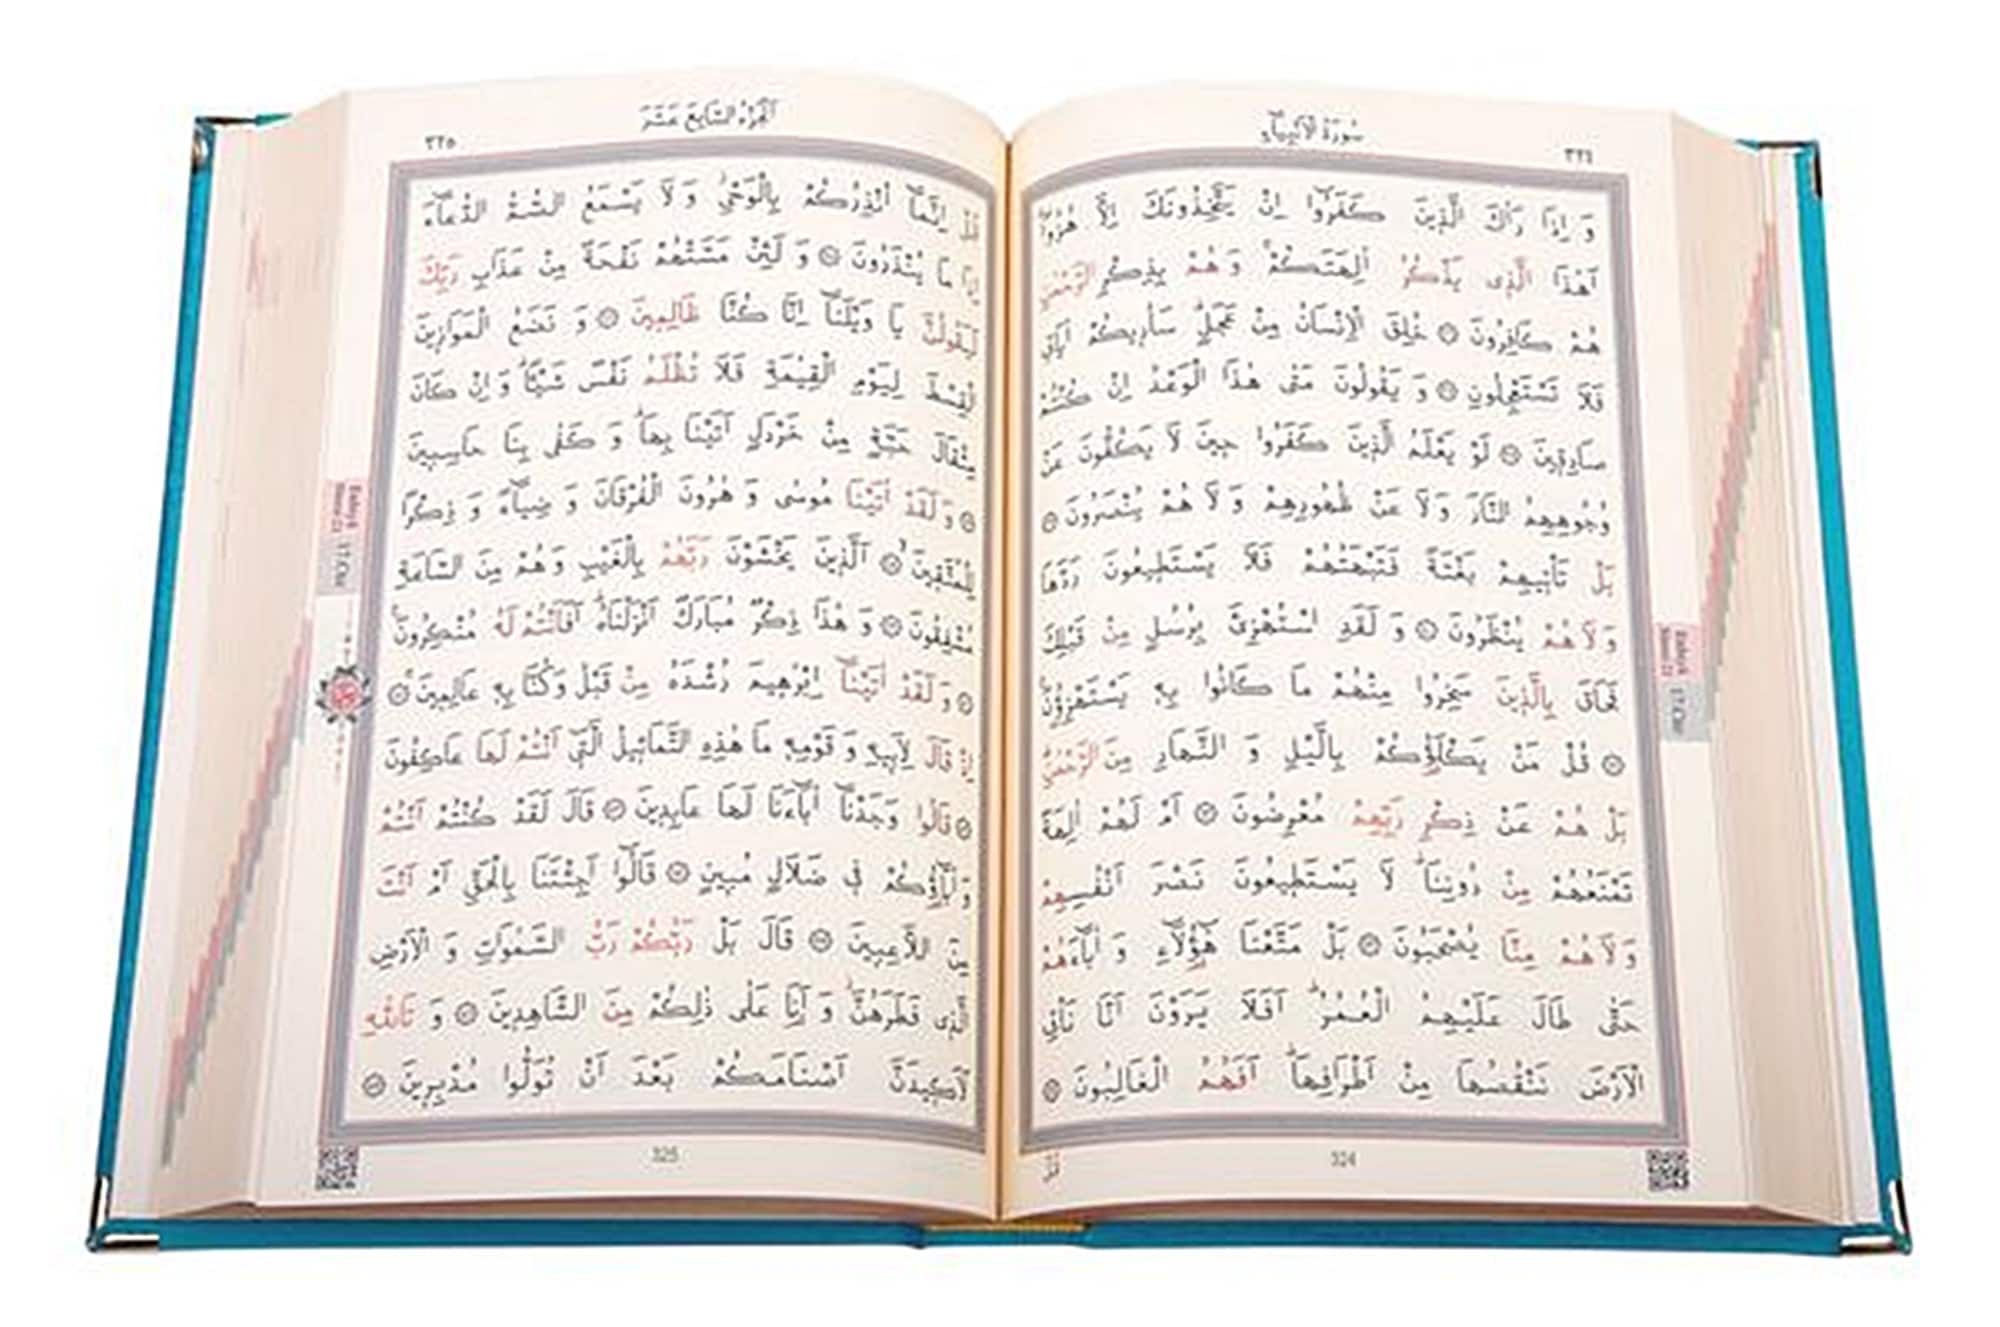 سُورَةُ الْاَنْبِيَاءِ
٣٢٤
وَ اِذَا رَاٰكَ الَّذ۪ينَ كَفَرُٓوا اِنْ يَتَّخِذُونَكَ اِلَّا هُزُوًاۜ
اَهٰذَا الَّذ۪ى يَذْكُرُ اٰلِهَتَكُمْۚ وَ هُمْ بِذِكْرِ الرَّحْمٰنِ
هُمْ كَافِرُونَ ۝ خُلِقَ الْاِنْسَانُ مِنْ عَجَلٍۜ سَاُر۪يكُمْ اٰيَات۪ى
فَلَا تَسْتَعْجِلُونِ ۝ وَ يَقُولُونَ مَتٰى هٰذَا الْوَعْدُ اِنْ كُنْتُمْ
صَادِق۪ينَ ۝ لَوْ يَعْلَمُ الَّذ۪ينَ كَفَرُوا ح۪ينَ لَا يَكُفُّونَ عَنْ
وُجُوهِهِمُ النَّارَ وَ لَا عَنْ ظُهُورِهِمْ وَ لَا هُمْ يُنْصَرُونَ ۝
بَلْ تَأْت۪يهِمْ بَغْتَةً فَتَبْهَتُهُمْ فَلَا يَسْتَط۪يعُونَ رَدَّهَا
وَ لَا هُمْ يُنْظَرُونَ ۝ وَ لَقَدِ اسْتُهْزِئَ بِرُسُلٍ مِنْ قَبْلِكَ
فَحَاقَ بِالَّذ۪ينَ سَخِرُوا مِنْهُمْ مَا كَانُوا بِه۪ يَسْتَهْزِؤُنَ۟
۝ قُلْ مَنْ يَكْلَؤُ۬كُمْ بِالَّيْلِ وَ النَّهَارِ مِنَ الرَّحْمٰنِۜ
بَلْ هُمْ عَنْ ذِكْرِ رَبِّهِمْ مُعْرِضُونَ ۝ اَمْ لَهُمْ اٰلِهَةٌ
تَمْنَعُهُمْ مِنْ دُونِنَاۜ لَا يَسْتَط۪يعُونَ نَصْرَ اَنْفُسِهِمْ
وَ لَا هُمْ مِنَّا يُصْحَبُونَ ۝ بَلْ مَتَّعْنَا هٰٓؤُ۬لَٓاءِ وَ اٰبَٓاءَهُمْ
حَتّٰى طَالَ عَلَيْهِمُ الْعُمُرُۜ اَفَلَا يَرَوْنَ اَنَّا نَأْتِى
الْاَرْضَ نَنْقُصُهَا مِنْ اَطْرَافِهَاۜ اَفَهُمُ الْغَالِبُونَ ۝
324
قُلْ
الْجُزْءُ السَّابِعَ عَشَرَ
٣٢٥
قُلْ اِنَّمَٓا اُنْذِرُكُمْ بِالْوَحْىِۘ وَ لَا يَسْمَعُ الصُّمُّ الدُّعَٓاءَ
اِذَا مَا يُنْذَرُونَ ۝ وَ لَئِنْ مَسَّتْهُمْ نَفْحَةٌ مِنْ عَذَابِ رَبِّكَ
لَيَقُولُنَّ يَا وَيْلَنَٓا اِنَّا كُنَّا ظَالِم۪ينَ ۝ وَ نَضَعُ الْمَوَاز۪ينَ
الْقِسْطَ لِيَوْمِ الْقِيٰمَةِ فَلَا تُظْلَمُ نَفْسٌ شَيْـًٔاۜ وَ اِنْ كَانَ
مِثْقَالَ حَبَّةٍ مِنْ خَرْدَلٍ اَتَيْنَا بِهَاۜ وَ كَفٰى بِنَا حَاسِب۪ينَ
۝ وَ لَقَدْ اٰتَيْنَا مُوسٰى وَ هٰرُونَ الْفُرْقَانَ وَ ضِيَٓاءً وَ ذِكْرًا
لِلْمُتَّق۪ينَۙ ۝ اَلَّذ۪ينَ يَخْشَوْنَ رَبَّهُمْ بِالْغَيْبِ وَ هُمْ مِنَ السَّاعَةِ
مُشْفِقُونَ ۝ وَ هٰذَا ذِكْرٌ مُبَارَكٌ اَنْزَلْنَاهُۜ اَفَاَنْتُمْ لَهُ مُنْكِرُونَ۟
۝ وَ لَقَدْ اٰتَيْنَٓا اِبْرٰه۪يمَ رُشْدَهُ مِنْ قَبْلُ وَ كُنَّا بِه۪ عَالِم۪ينَۚ ۝
اِذْ قَالَ لِاَب۪يهِ وَ قَوْمِه۪ مَا هٰذِهِ التَّمَاث۪يلُ الَّت۪ٓى اَنْتُمْ لَهَا عَاكِفُونَ
۝ قَالُوا وَجَدْنَٓا اٰبَٓاءَنَا لَهَا عَابِد۪ينَ ۝ قَالَ لَقَدْ كُنْتُمْ اَنْتُمْ
وَ اٰبَٓاؤُ۬كُمْ ف۪ى ضَلَالٍ مُب۪ينٍ ۝ قَالُٓوا اَجِئْتَنَا بِالْحَقِّ اَمْ اَنْتَ
مِنَ اللَّاعِب۪ينَ ۝ قَالَ بَلْ رَبُّكُمْ رَبُّ السَّمٰوَاتِ وَ الْاَرْضِ
الَّذ۪ى فَطَرَهُنَّۘ وَ اَنَا عَلٰى ذٰلِكُمْ مِنَ الشَّاهِد۪ينَ ۝ وَ تَاللّٰهِ
لَاَك۪يدَنَّ اَصْنَامَكُمْ بَعْدَ اَنْ تُوَلُّوا مُدْبِر۪ينَ ۝
325